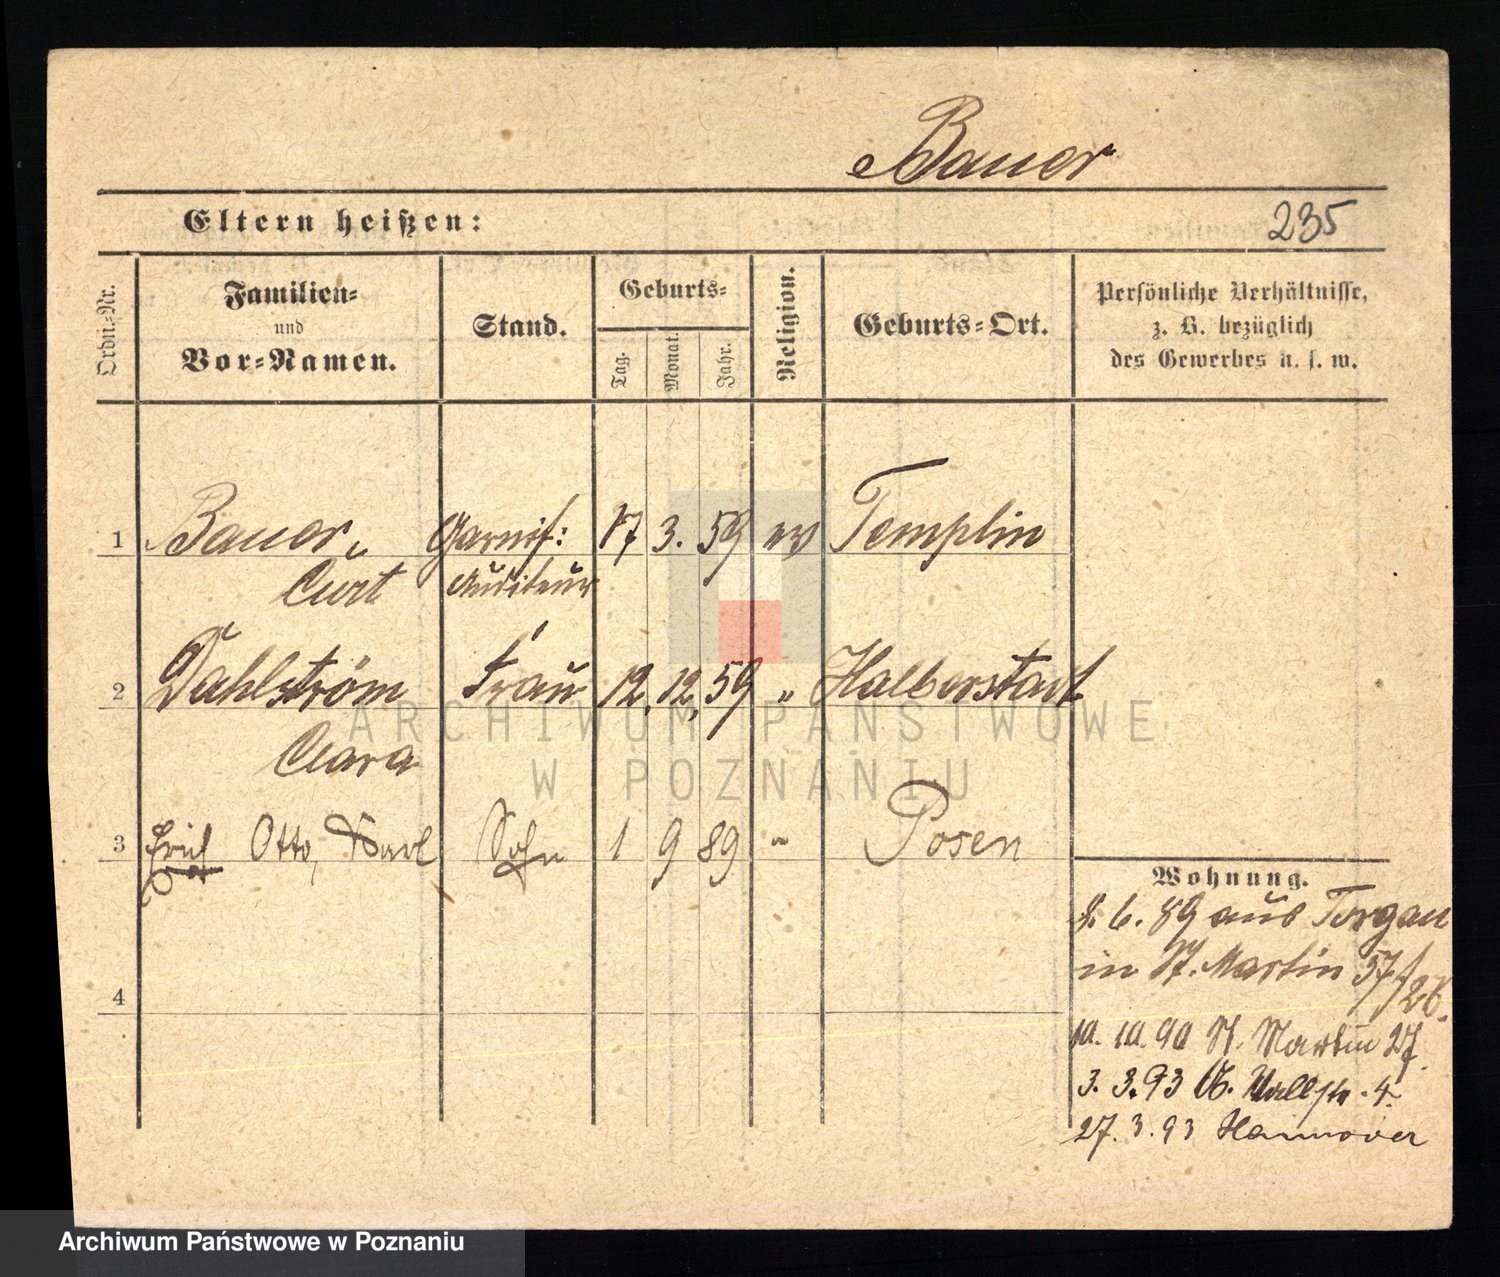 Bauer
Eltern heißen:
235
Ordn.-Nr.
Familien-
und
Vor-Namen.
Stand.
Geburts-
Tag.
Monat.
Jahr.
Religion.
Geburts-Ort.
Persönliche Verhältnisse,
z. B. bezüglich
des Gewerbes u. s. w.
1 Bauer, Garnis: 17 3. 59 ev Templin
Curt Auditeur
2 Dahlström Frau 12. 12. 59 " Halberstadt
Clara
3 Erich Otto, Karl Sohn 1 9 89 " Posen
4
Wohnung.
6. 89 aus Torgau
in St. Martin 57/26.
10. 10. 90 St. Martin 27.
3. 3. 93 Wallstr. 4.
27. 3. 93 Hannover
ARCHIWUM PAŃSTWOWE
W POZNANIU
Archiwum Państwowe w Poznaniu